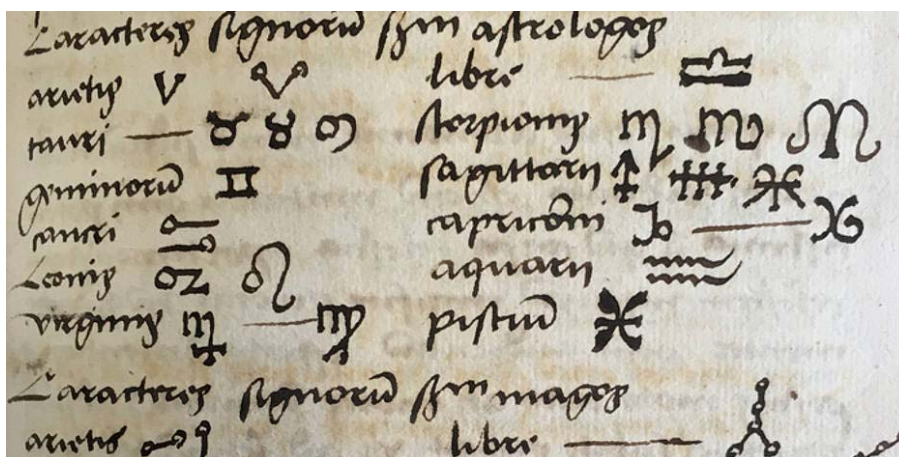 Caracteres signorū sꝫm astrologos
arietis
tauri
geminorū
cancri
Leonis
virginis
libre
scorpionis
sagittarii
capricorni
aquarii
pisciū
Caracteres signorū sꝫm magos
arietis
libre